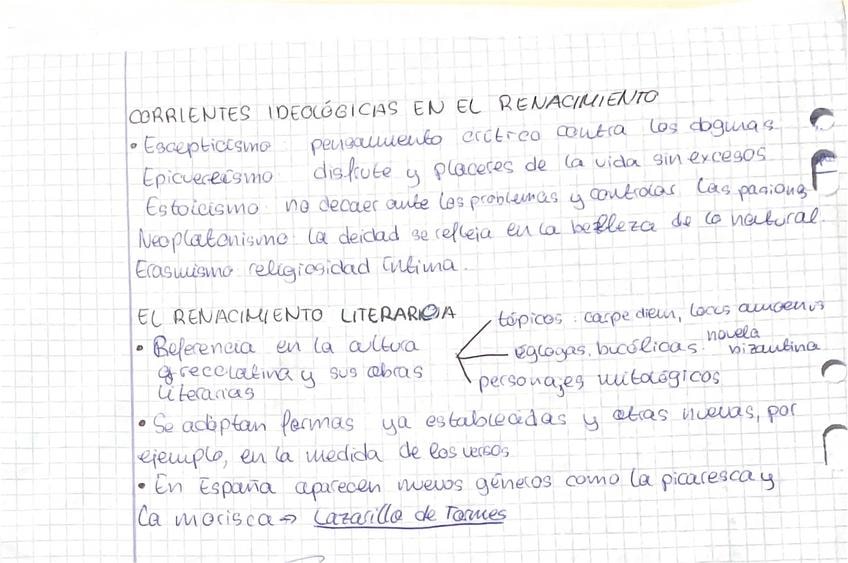 CORRIENTES IDEOLÓGICAS EN EL RENACIMIENTO
• Escepticismo: pensamiento crítico contra los dogmas
Epicureísmo: disfrute y placeres de la vida sin excesos
Estoicismo: no decaer ante los problemas y controlar las pasiones
Neoplatonismo: la deidad se refleja en la belleza de lo natural.
Erasmismo: religiosidad íntima.
EL RENACIMIENTO LITERARIO
• Referencia en la cultura
grecolatina y sus obras
literarias
tópicos: carpe diem, locus amoenus
églogas, bucólicas, novela bizantina
personajes mitológicos
• Se adoptan formas ya establecidas y otras nuevas, por
ejemplo, en la medida de los versos
• En España aparecen nuevos géneros como la picaresca y
la morisca → Lazarillo de Tormes